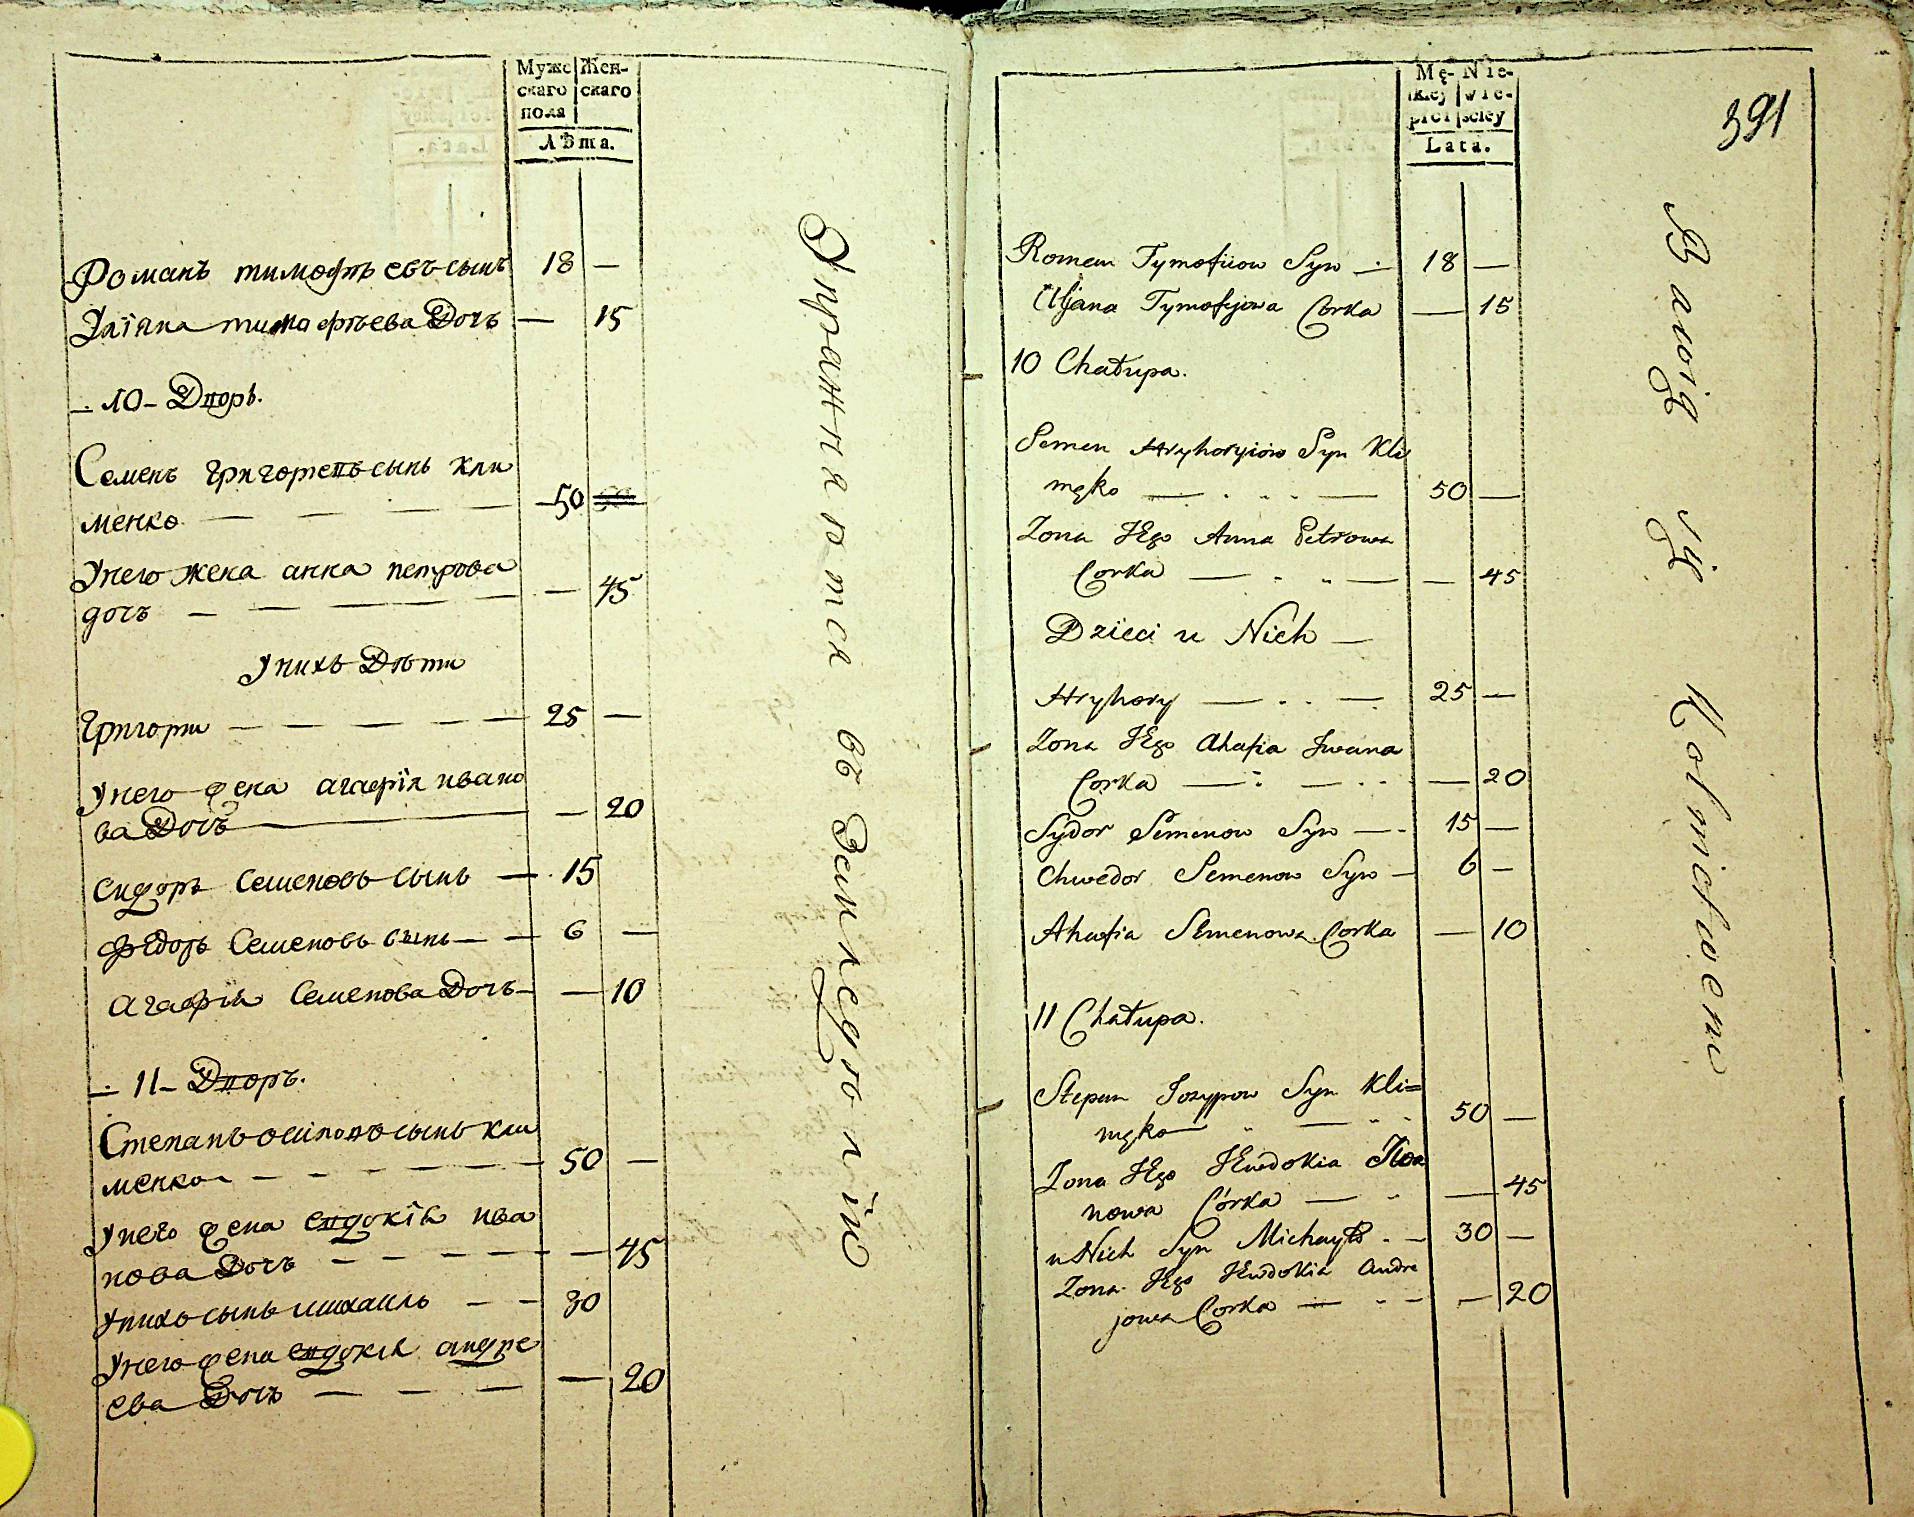 Муже Жен-
скаго скаго
пола
Лѣта.
Романъ тимофѣевъ сынъ 18 —
Уліяна тимофѣева Дочь — 15
10 Дворъ.
Семенъ григорьевъ сынъ кли
менко 50
Унего жена анна петрова
дочь — 45
Унихъ Дѣти
григори 25 —
Унего жена агафїя ивано
ва Дочь — 20
сидоръ семеновъ сынъ — 15
федоръ семеновъ сынъ — 6 —
агафия семенова Дочь — 10
11 Дворъ.
Степанъ осиповъ сынъ кли
менко 50 —
Унего жена евдокїя ива
нова Дочь — 45
Унихъ сынъ михаилъ — 30
Унего жена евдокия андре
ева Дочь — 20
Упражняются въ Земледѣлїи
391
Mę- Nie-
skiey wie-
płci sciey
Lata.
Roman Tymofiiow Syn — 18 —
Uljana Tymofijowa Corka — 15
10 Chałupa.
Semen Hryhoryiow Syn Kli
męko — 50 —
Zona JEgo Anna Petrowa
Corka — 45
Dzieci u Nich —
Hryhory — 25 —
Zona JEgo Ahafia Jwana
Corka — 20
Sydor Semenow Syn — 15 —
Chwedor Semenow Syn — 6 —
Ahafia Semenowa Corka — 10
11 Chałupa.
Stepan Jozypow Syn Kli=
męko — 50 —
Zona JEgo JEwdokia
nowa Córka — 45
u Nich Syn Michayło — 30 —
Zona JEgo JEwdokia Andre
jowa Corka — 20
Bawią się Rolnictwem